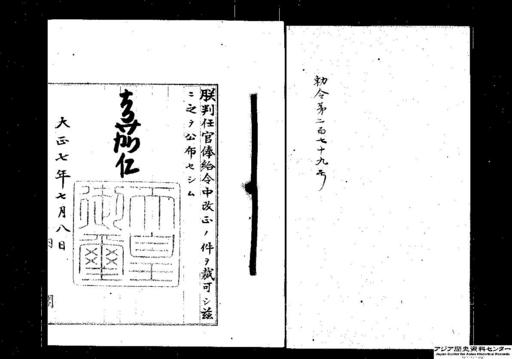 勅令第二百七十九号
朕判任官俸給令中改正ノ件ヲ裁可シ茲
ニ之ヲ公布セシム
嘉仁
天皇御璽
大正七年七月八日
アジア歴史資料センター
Japan Center for Asian Historical Records